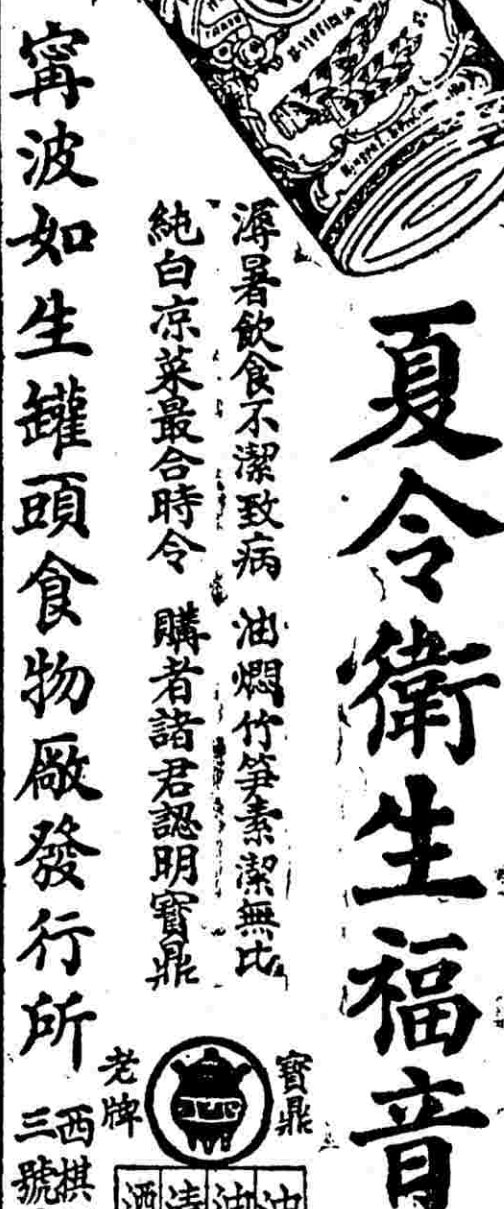 夏令衛生福音
溽暑飲食不潔致病 油燜竹笋素潔無比
純白凉菜最合時令 購者諸君認明寶鼎
寶鼎
老牌
寗波如生罐頭食物廠發行所
西棋
三號